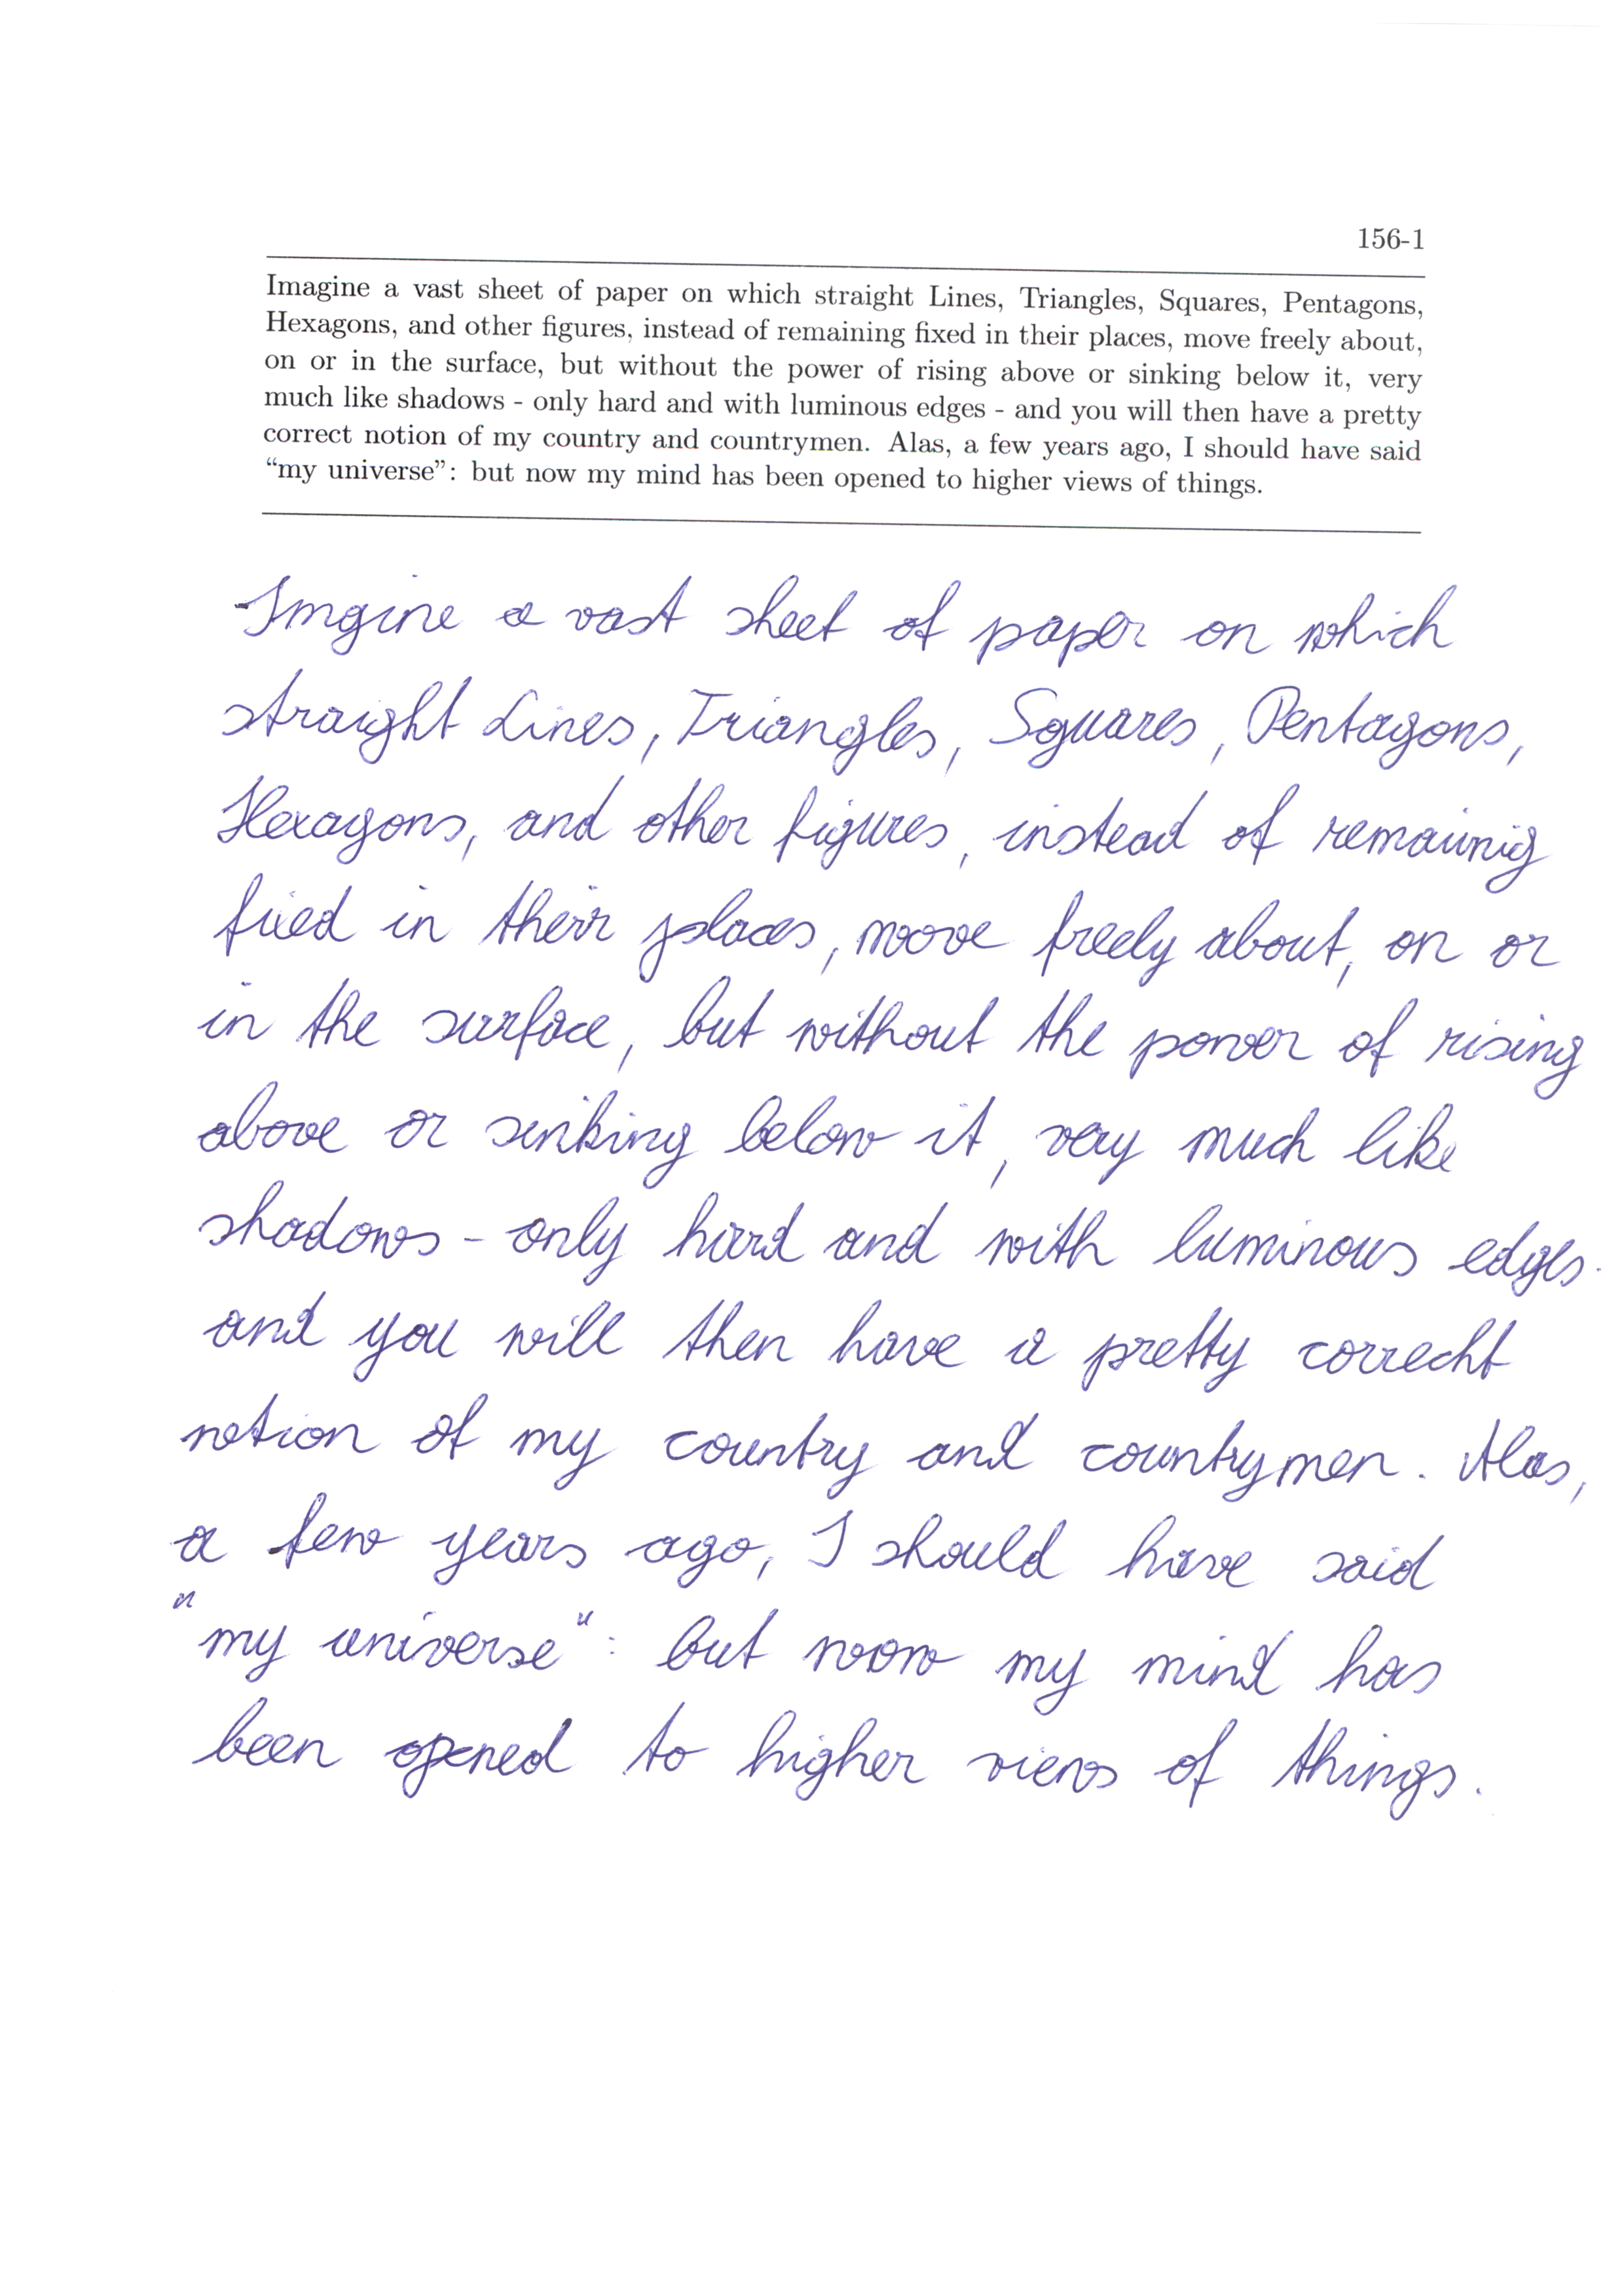 156-1
Imagine a vast sheet of paper on which straight Lines, Triangles, Squares, Pentagons,
Hexagons, and other figures, instead of remaining fixed in their places, move freely about,
on or in the surface, but without the power of rising above or sinking below it, very
much like shadows - only hard and with luminous edges - and you will then have a pretty
correct notion of my country and countrymen. Alas, a few years ago, I should have said
“my universe”: but now my mind has been opened to higher views of things.
Imgine a vast sheet of paper on which
straight Lines, Triangles, Squares, Pentagons,
Hexagons, and other figures, instead of remainig
fixed in their places, moove freely about, on or
in the surface, but without the power of rising
above or sinking below it, very much like
shadows - only hard and with luminous edges -
and you will then have a pretty correcht
notion of my country and countrymen. Alas,
a few years ago, I should have said
"my universe": but noow my mind has
been opened to higher views of things.